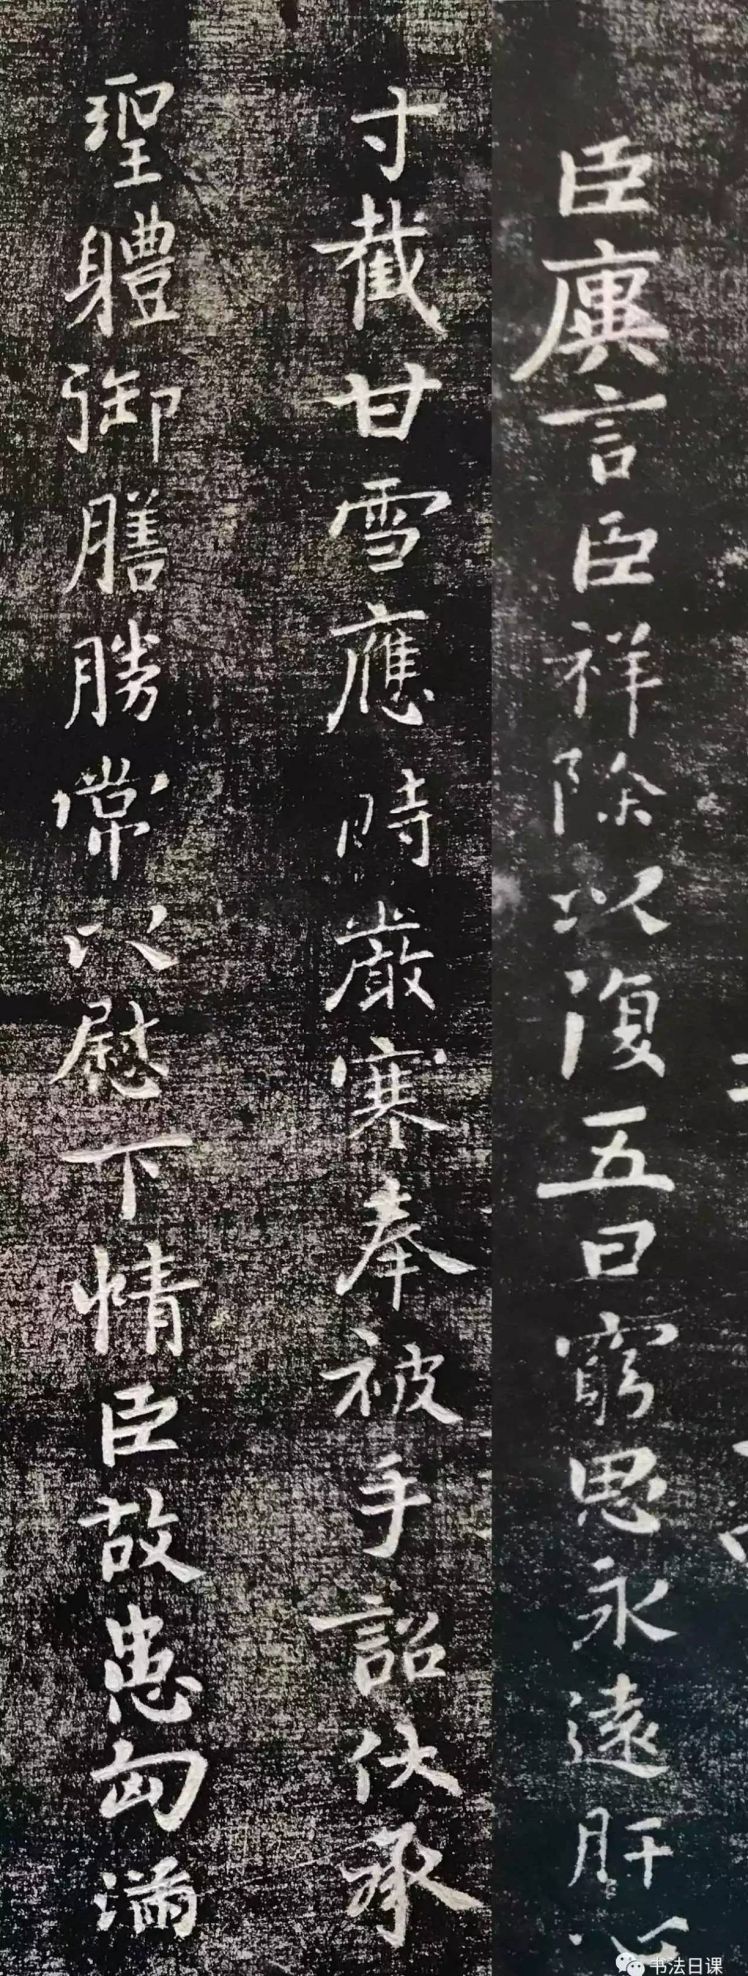 臣廙言臣祥除以復五日窮思永遠肝心
寸截甘雪應時嚴寒奉被手詔伏承
聖體御膳勝常以慰下情臣故患匈滿
书法日课